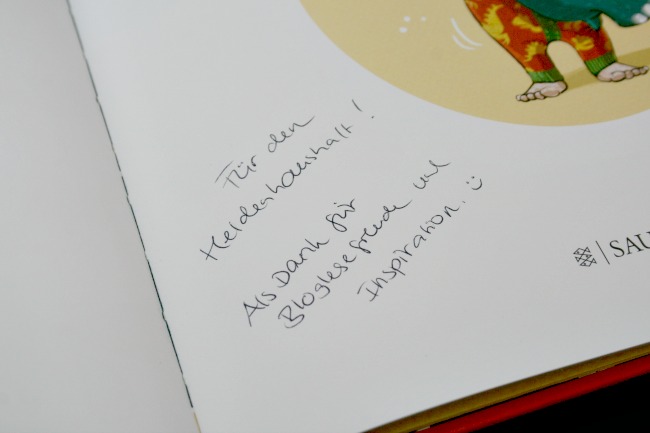 Für den
Heldenhaushalt!
Als Dank für
Bloglesefreude und
Inspiration. :)
SAU